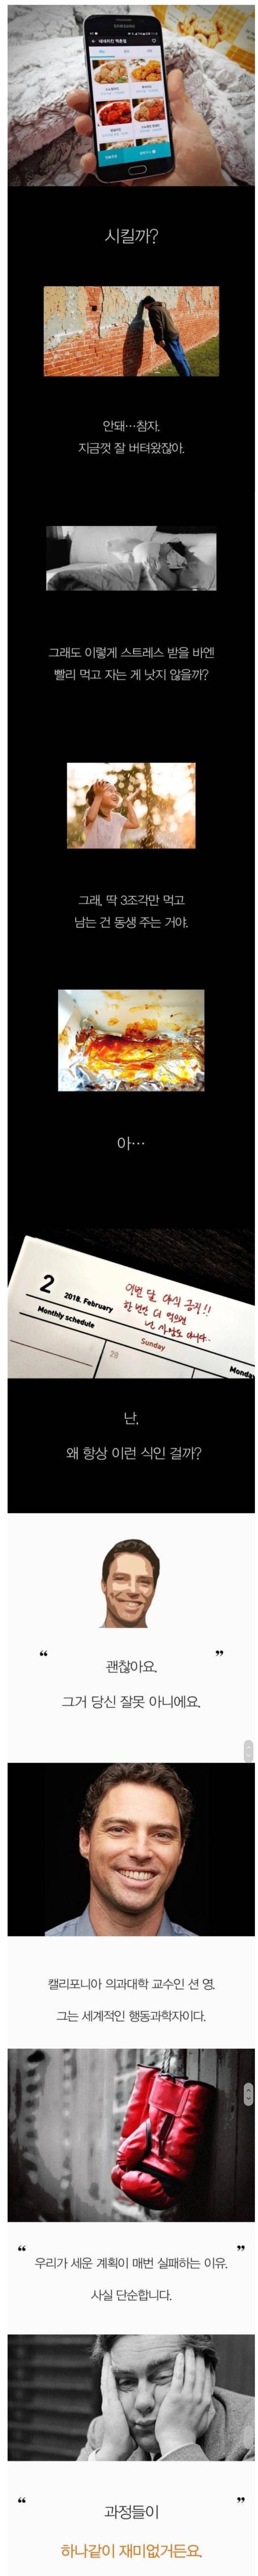 SAMSUNG
시킬까?
안돼…참자.
지금껏 잘 버텨왔잖아.
그래도 이렇게 스트레스 받을 바엔
빨리 먹고 자는 게 낫지 않을까?
그래, 딱 3조각만 먹고
남는 건 동생 주는 거야.
아…
2
2018. February
Monthly schedule
이번 달 야식 금지!!
한 번만 더 먹으면
난 사람도 아니다..
Sunday
Monda
28
난,
왜 항상 이런 식인 걸까?
“ ”
괜찮아요,
그거 당신 잘못 아니에요.
캘리포니아 의과대학 교수인 션 영.
그는 세계적인 행동과학자이다.
“ ”
우리가 세운 계획이 매번 실패하는 이유.
사실 단순합니다.
“ ”
과정들이
하나같이 재미없거든요.